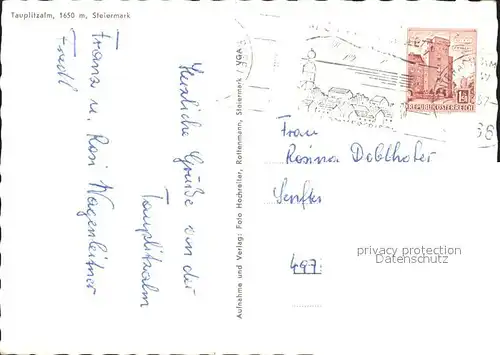 Tauplitzalm, 1650 m, Steiermark
Herzliche Grüße von der
Tauplitzalm
Franz u. Rosi Wagenleitner
Fredl
Aufnahme und Verlag: Foto Hochreiter, Rottenmann, Steiermark / VGA
REPUBLIK ÖSTERREICH
Frau
Rosina Doblhofer
Senften
497
privacy protection
AnsichtskartenCenter.de